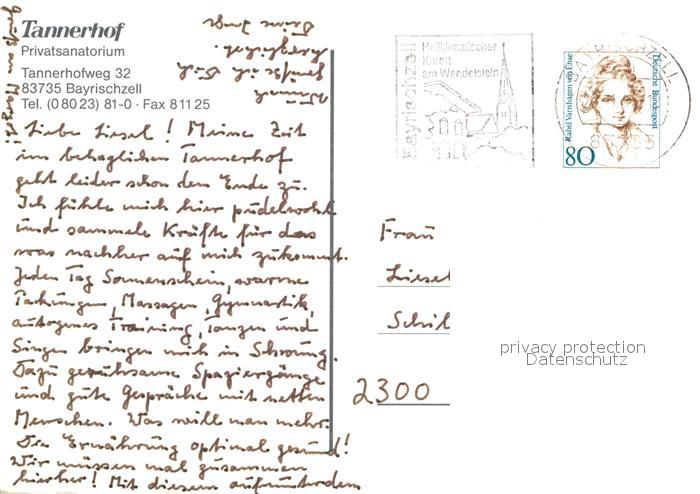 Tannerhof
Privatsanatorium
Tannerhofweg 32
83735 Bayrischzell
Tel. (0 80 23) 81-0 · Fax 8 11 25
Liebe Liesel! Meine Zeit
im behaglichen Tannerhof
geht leider schon dem Ende zu.
Ich fühle mich hier pudelwohl
und sammele Kräfte für das
was nachher auf mich zukommt.
Jeden Tag Sonnenschein, warme
Packungen, Massagen, Gymnastik,
autogenes Training, Tanzen und
Singen bringen mich in Schwung.
Dazu geruhsame Spaziergänge
und gute Gespräche mit netten
Menschen. Was will man mehr.
Die Ernährung optimal gesund!
Wir müssen mal zusammen
hierher! Mit diesem aufmunterndem
herzlichst
Deine Inge
Bayrischzell
Heilklimatischer
Kurort
am Wendelstein
BAYRISCHZELL
83735
Rahel Varnhagen von Ense
Deutsche Bundespost
80
Frau
Liesel
Schil
2300
privacy protection
Datenschutz